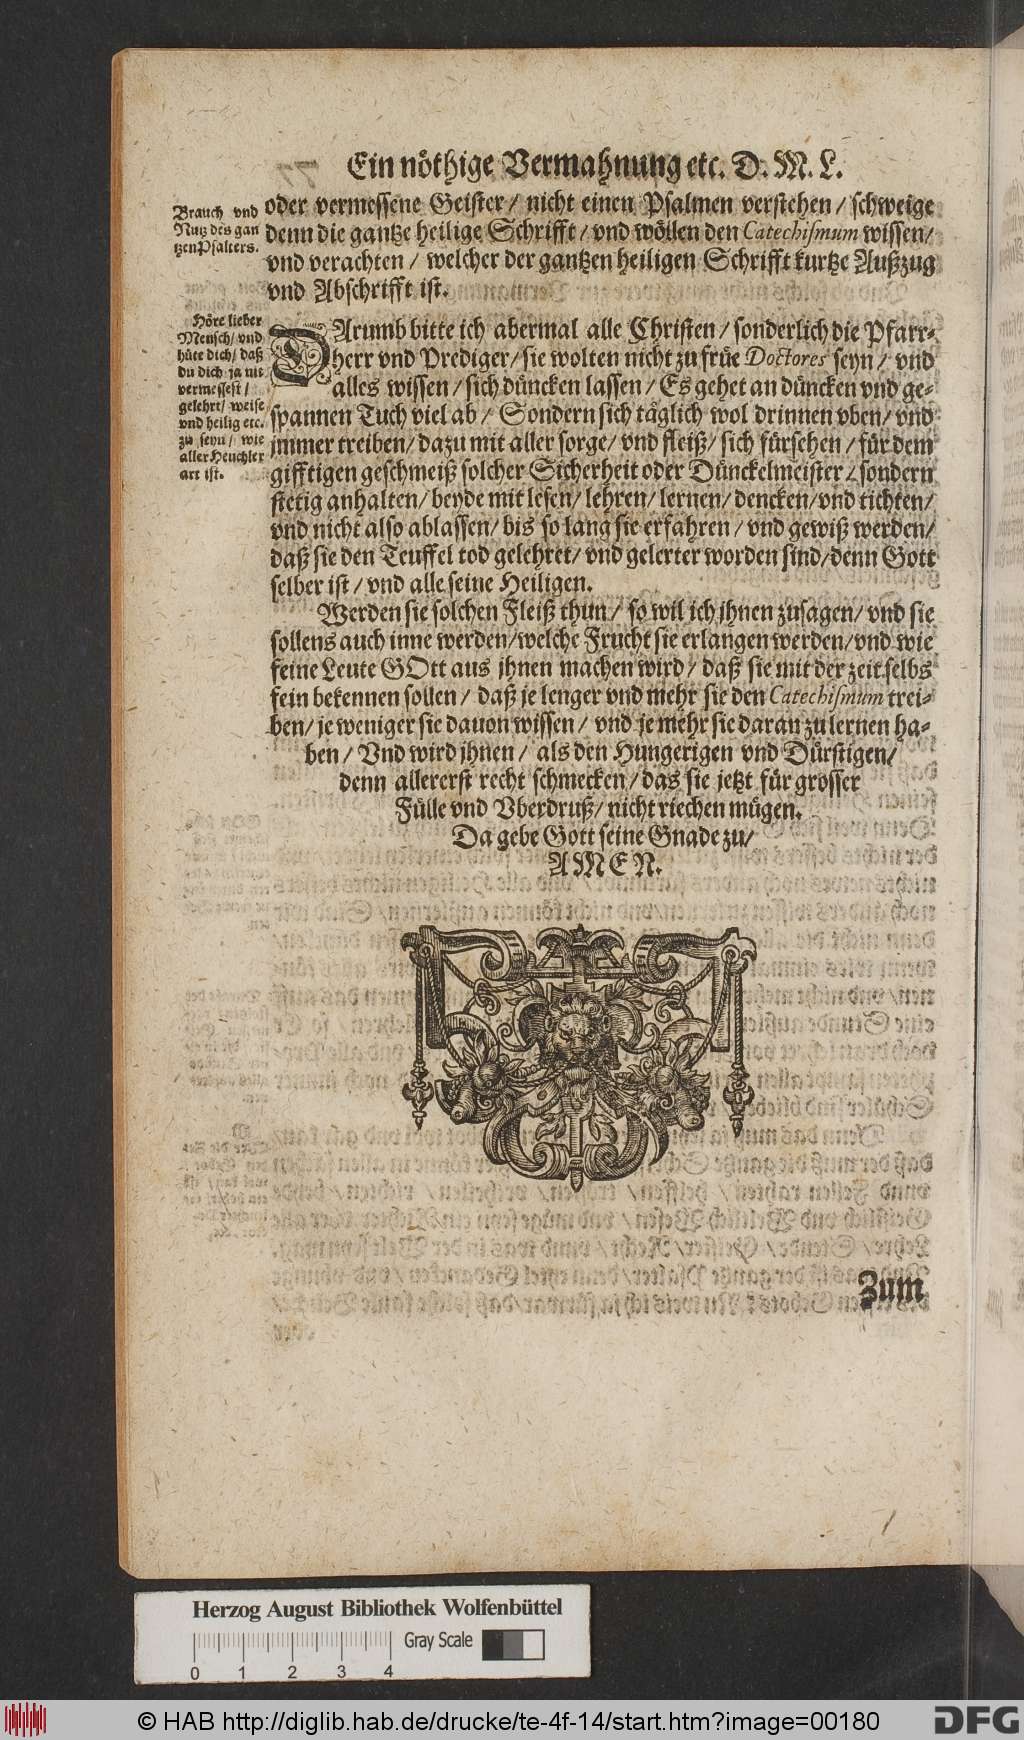 Ein nöthige Vermahnung etc. D. M. L.
Brauch vnd
Nutz des gan
tzen Psalters.
oder vermessene Geister / nicht einen Psalmen verstehen / schweige
denn die gantze heilige Schrifft / vnd wöllen den Catechismum wissen /
vnd verachten / welcher der gantzen heiligen Schrifft kurtze Außzug
vnd Abschrifft ist.
Höre lieber
Mensch / vnd
hüte dich / daß
du dich ja nit
vermessest /
gelehrt / weise
vnd heilig etc.
zu seyn / wie
aller Heuchler
art ist.
DArumb bitte ich abermal alle Christen / sonderlich die Pfarr-
herr vnd Prediger / sie wolten nicht zu früe Doctores seyn / vnd
alles wissen / sich düncken lassen / Es gehet an düncken vnd ge-
spannen Tuch viel ab / Sondern sich täglich wol drinnen vben / vnd
jmmer treiben / dazu mit aller sorge / vnd fleiß / sich fürsehen / für dem
gifftigen geschmeiß solcher Sicherheit oder Dünckelmeister / sondern
stetig anhalten / beyde mit lesen / lehren / lernen / dencken / vnd tichten /
vnd nicht also ablassen / bis so lang sie erfahren / vnd gewiß werden /
daß sie den Teuffel tod gelehret / vnd gelerter worden sind / denn Gott
selber ist / vnd alle seine Heiligen.
Werden sie solchen Fleiß thun / so wil ich jhnen zusagen / vnd sie
sollens auch inne werden / welche Frucht sie erlangen werden / vnd wie
feine Leute GOtt aus jhnen machen wird / daß sie mit der zeit selbs
fein bekennen sollen / daß je lenger vnd mehr sie den Catechismum trei-
ben / je weniger sie dauon wissen / vnd je mehr sie daran zu lernen ha-
ben / Vnd wird jhnen / als den Hungerigen vnd Dürstigen /
denn allererst recht schmecken / das sie jetzt für grosser
Fülle vnd Vberdruß / nicht riechen mügen.
Da gebe Gott seine Gnade zu /
AMEN.
Zum
Herzog August Bibliothek Wolfenbüttel
Gray Scale
0 1 2 3 4
© HAB http://diglib.hab.de/drucke/te-4f-14/start.htm?image=00180
DFG